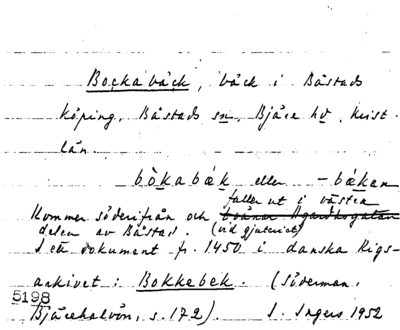 Bockabäck, bäck i Båstads
köping, Båstads sn, Bjäre hd, Krist.
län
bòkabæk eller -bækan
faller ut i västra
Kommer söderifrån och tvärar Agardhsgatan
delen av Båstad. (vid gjuteriet)
I ett dokument fr. 1450 i danska Rigs-
arkivet: Bokkebek. (Söderman,
5198
Bjärehalvön, s. 172). I. Ingers 1952